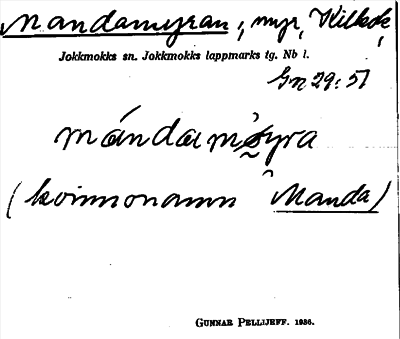 Mandamyran, myr, Kilbok
Jokkmokks sn. Jokkmokks lappmarks tg. Nb l.
Gn 29:51
mándam
(kvinnonamn Manda)
GUNNAR PELLIJEFF. 1936.